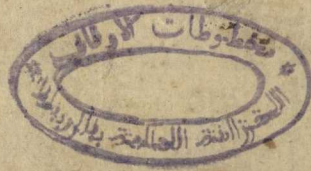 مخطوطات الأوقاف
الخزانة العامة بالرباط